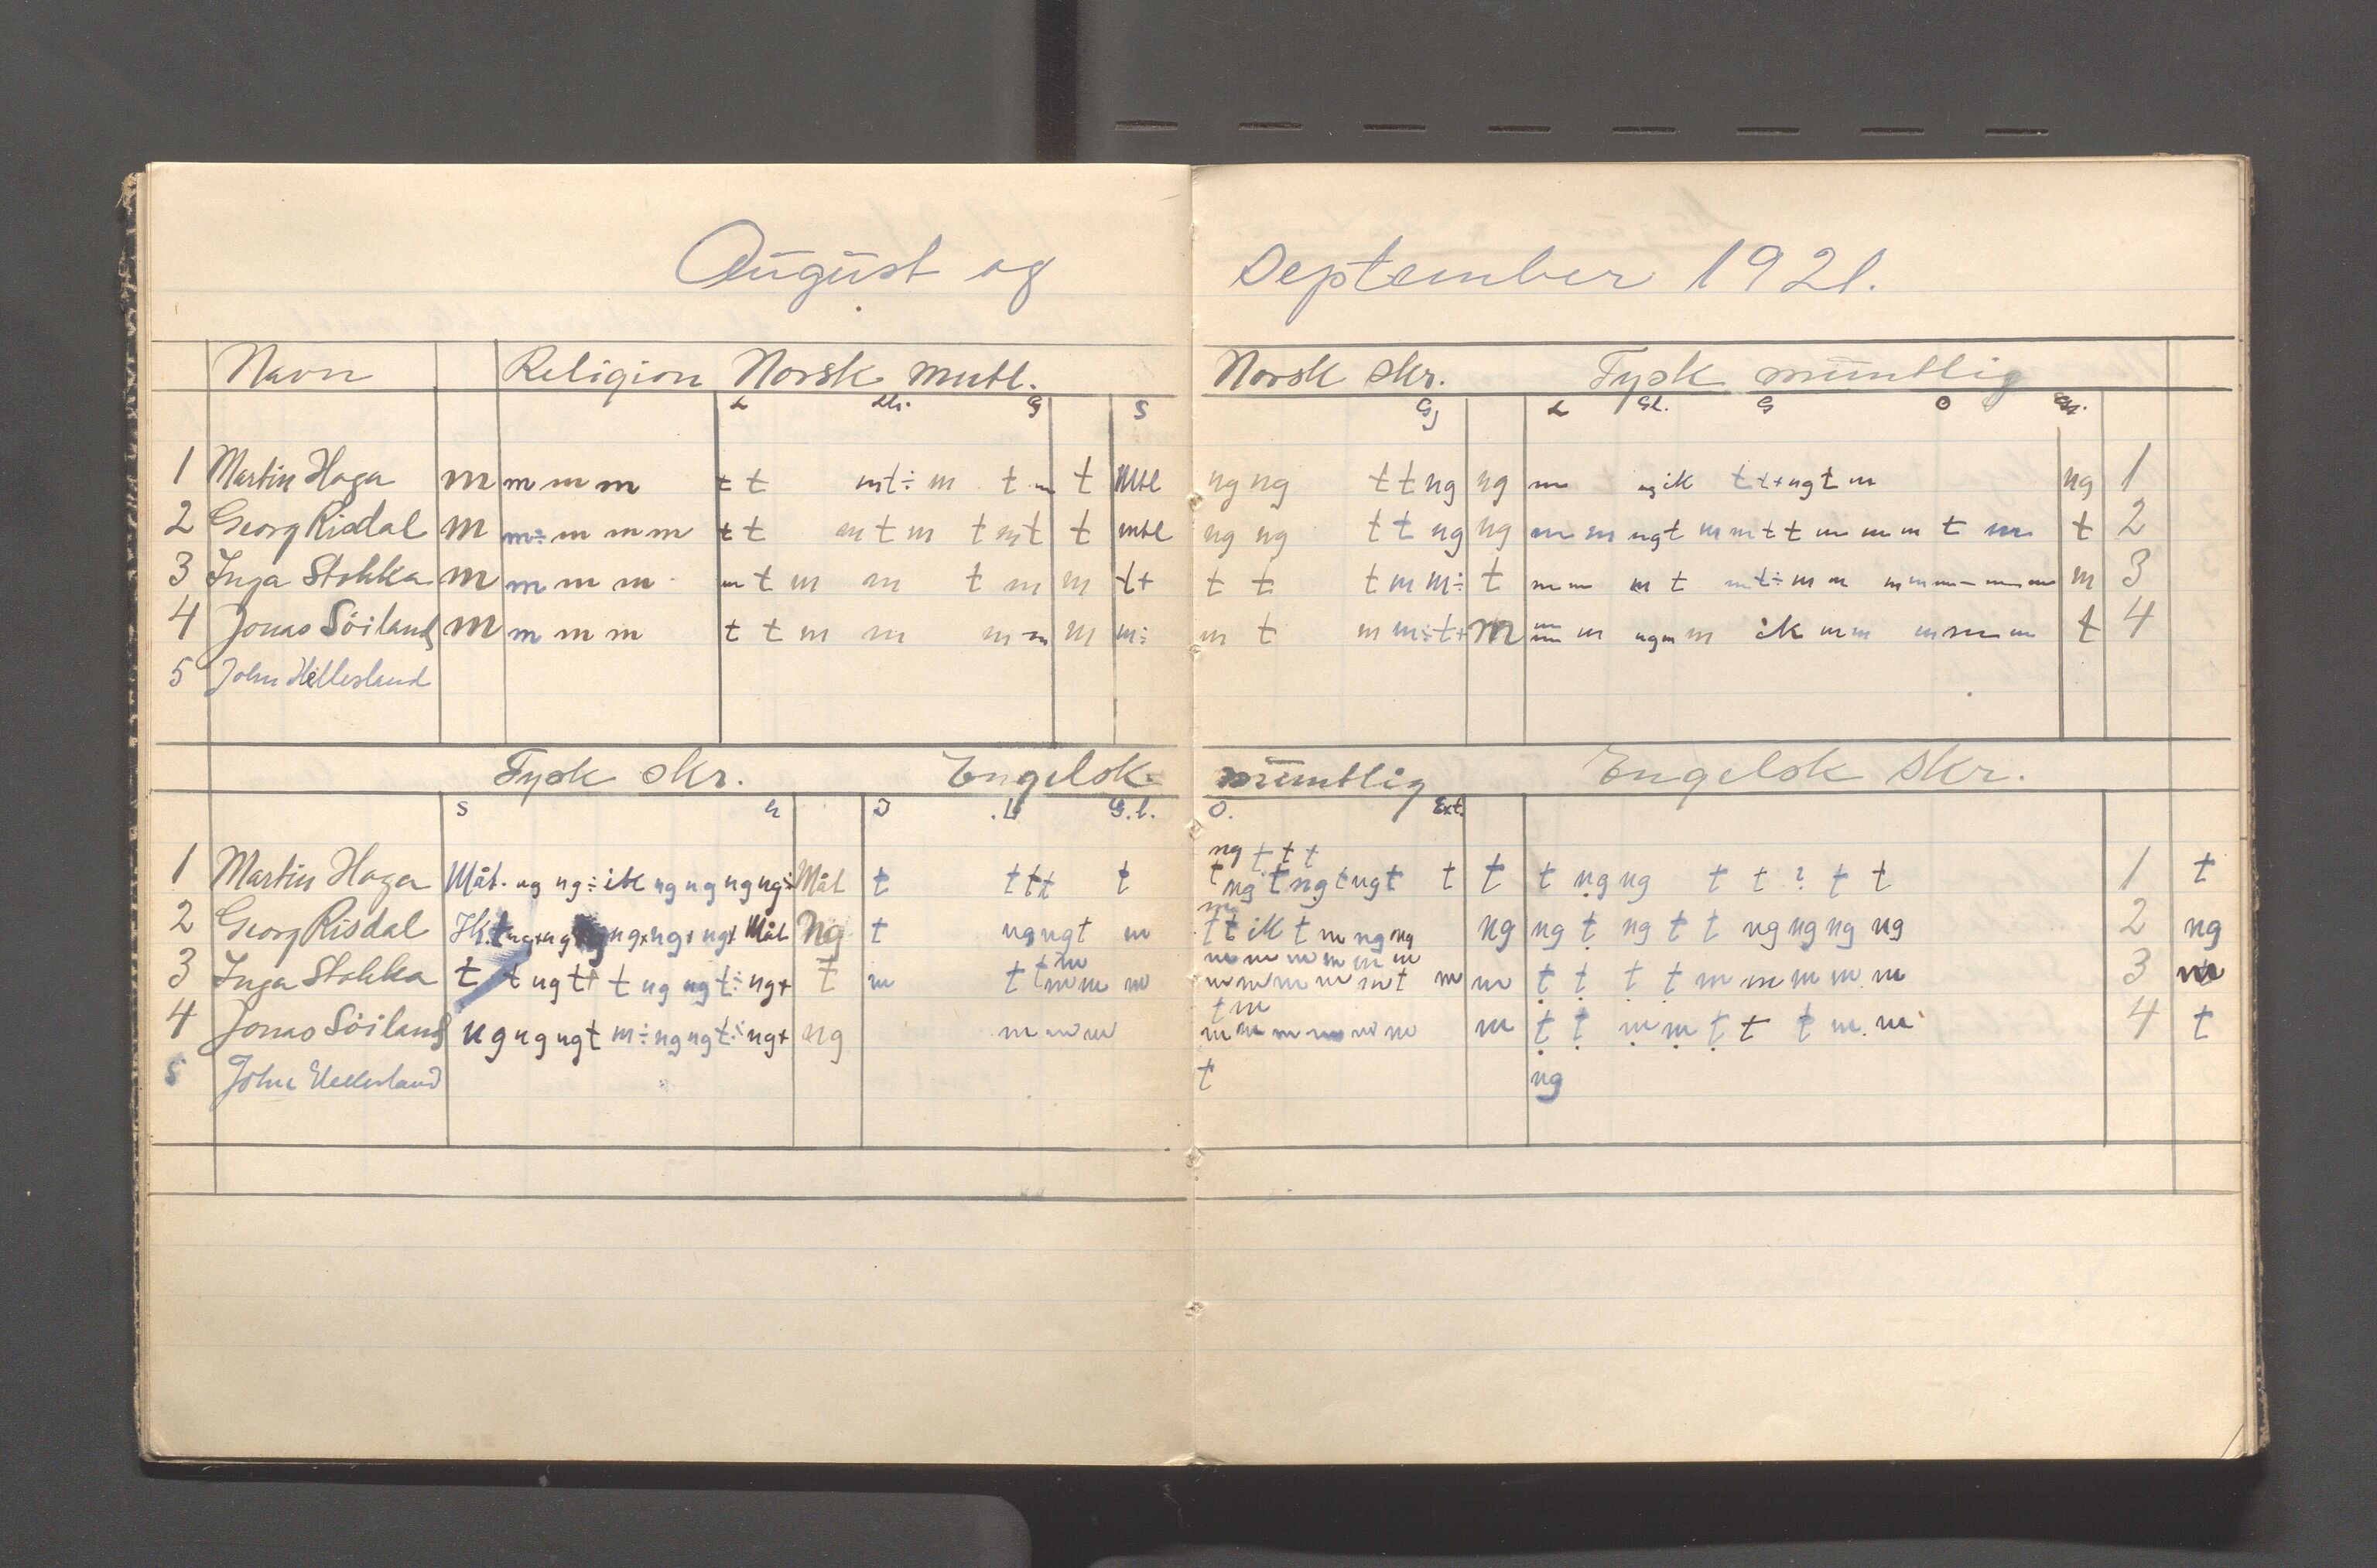 August og September 1921.
Navn Religion Norsk mutl. Norsk skr. Tysk muntlig
L G S G L Gl. G O
1 Martin Haga m m m m t t mt÷ m t m t Mtl ng ng t t ng ng m ng ik t t+ ng t m ng 1
2 Georg Risdal m m÷ m m m t t m t m t m t t mtl ng ng t t ng ng m m ng t m m t t m m m t m t 2
3 Inga Stokka m m m m m t m m t m m t+ t t t m m÷ t m m m t m t÷ m m m m m m m m 3
4 Jonas Söiland m m m m t t m m m m m m÷ m t m m÷ t+ m m m m ng m m ik m m m m m m t 4
5 John Hellesland
Tysk skr. Engelsk muntlig Engelsk skr.
S G.l. O. Ext.
ng t t t
1 Martin Haga Måt. ng ng÷ ik ng ng ng ng÷ Måt t t t t t t ng t ng t ng t t t t ng ng t t ? t t 1 t
m
2 Georg Risdal Ik t ng+ ng ng+ ng+ ng+ Måt Ng t ng ng t m t t ik t m ng ng ng ng t ng t t ng ng ng ng 2 ng
m m m m m m m
3 Inga Stokka t t ng t+ t ng ng t÷ ng+ t m t t m m m m m m m m m t m m t t t t m m m m m 3 m
t m
4 Jonas Söiland ng ng ng t m÷ ng ng t÷ ng+ ng m m m m m m m m m m t t m m t t t m m 4 t
5 John Hellesland t ng